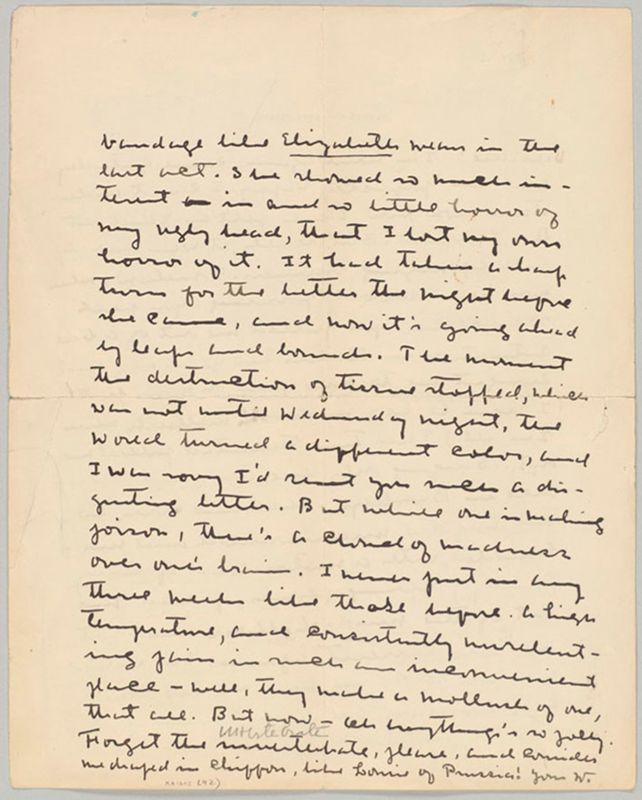 bandage like Elizabeth wears in the
last act. She showed so much in-
terest in and so little horror of
my ugly head, that I lost my own
horror of it. It had taken a sharp
turn for the better the night before
she came, and now it's going ahead
by leaps and bounds. The moment
the destruction of tissue stopped, which
was not until Wednesday night, the
world turned a different color, and
I was sorry I'd sent you such a dis-
gusting letter. But while one is making
poison, there's a cloud of madness
over one's brain. I never put in any
three weeks like those before. A high
temperature, and consistently unrelent-
ing pain in such an inconvenient
place – well, they make a mollusk of one,
that all. But now – oh anything's so jolly.
invertebrate
Forget the invertebrate, please, and consider
me draped in chiffon, like Louise of Prussia! Your W.
(42)